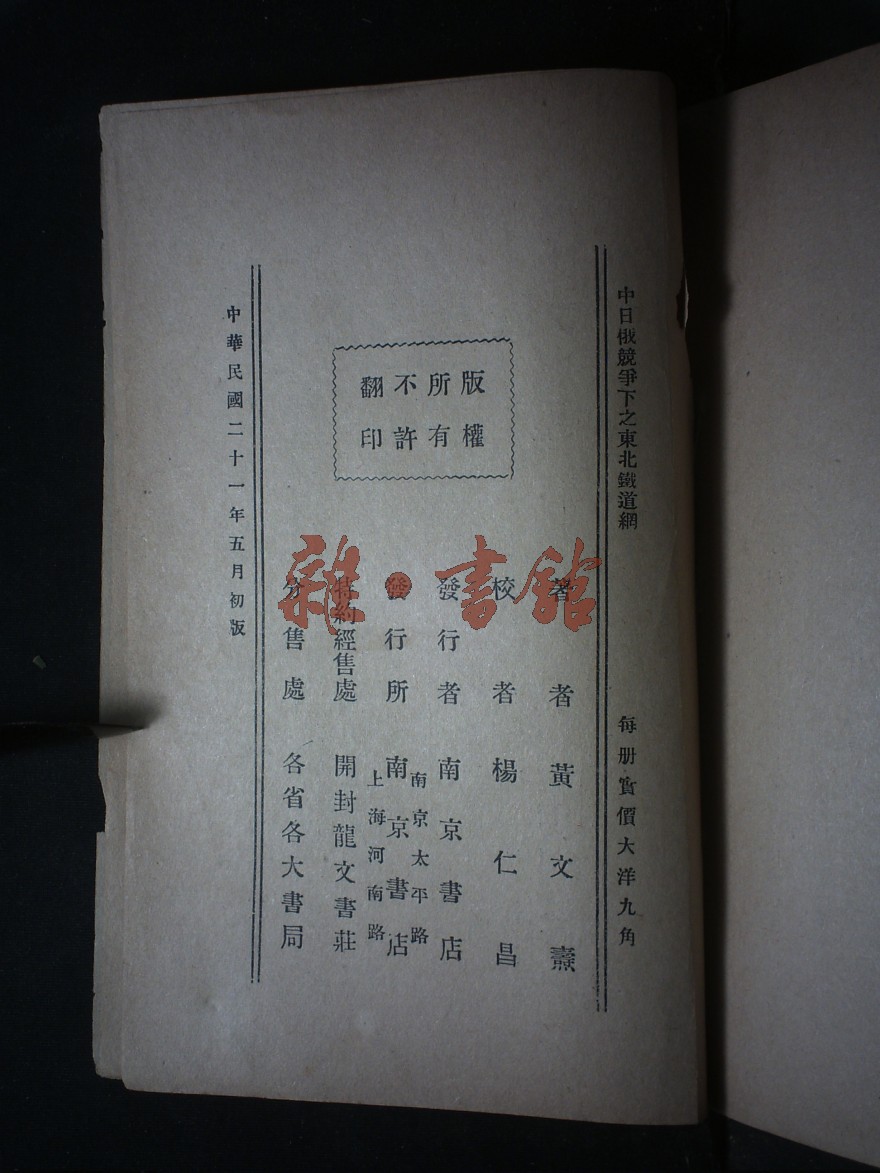 中日俄競爭下之東北鐵道網
每册實價大洋九角
版權
所有
不許
翻印
著者黃文燾
校者楊仁昌
發行者南京書店
南京太平路
發行所南京書店
上海河南路
特約經售處開封龍文書莊
分售處各省各大書局
中華民國二十一年五月初版
雜·書館